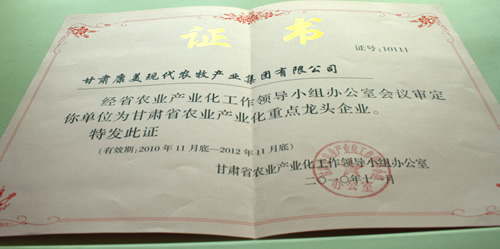 证书
证号：10111
甘肃康美现代农牧产业集团有限公司
经省农业产业化工作领导小组办公室会议审定
你单位为甘肃省农业产业化重点龙头企业。
特发此证
（有效期：2010年11月底—2012年11月底）
甘肃省农业产业化工作领导小组办公室
二〇一〇年十一月
办公室